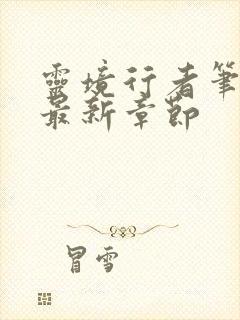 靈境行者筆
最新章節
冒雪